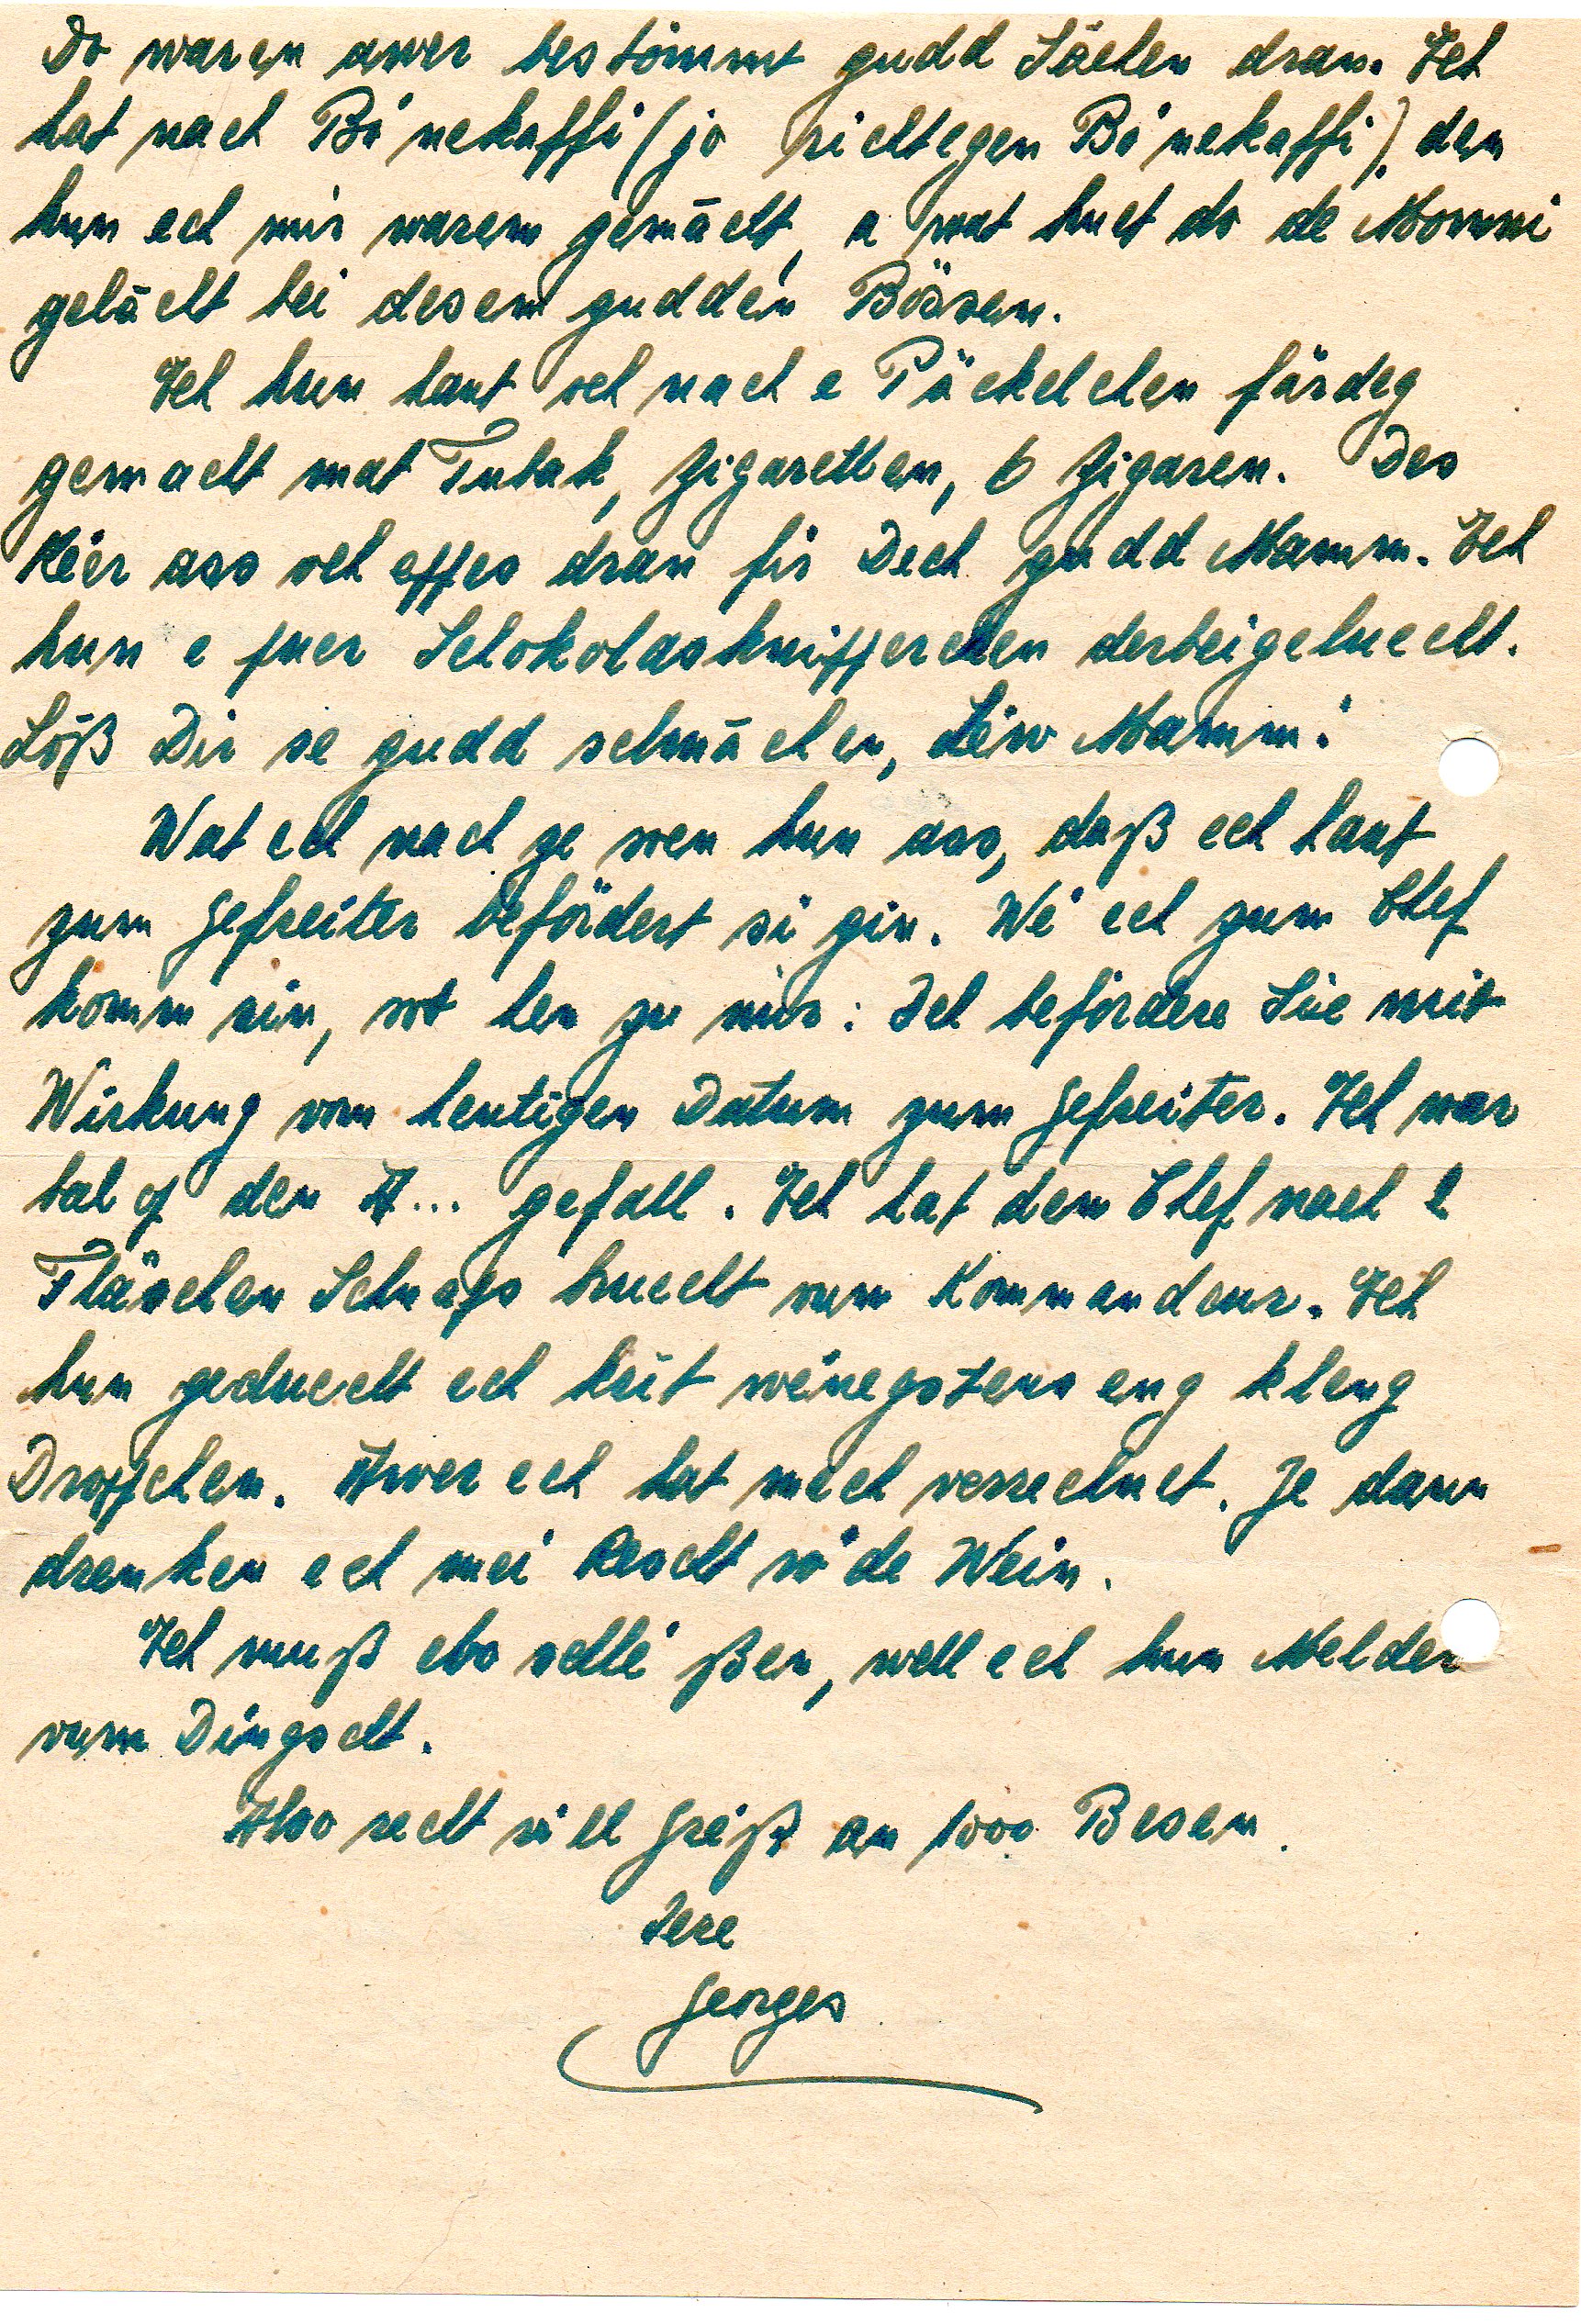 Do waren awer bestömmt gudd Sächen dran. Ech
hat nach Bó nekaffi (jo richtegen Bó nekaffi), den
hun ech mir warem gemächt, a wat huet do de Mommi
gelächt bei desem gudden Bössen.
Ech hun haut och nach e Päckelchen färdeg
gemacht mat Tubak, Zigaretten, 6 Zigaren. Des
Kéer ass och eppes dran fir Dech gudd Mamm. Ech
hun e puer Schokolasknippercher derbeigeluecht.
Löß Dir se gudd schmächen, Léiw Mamm!
Wat ech nach ge wen hun ass, daß ech haut
zum Gefreiter befördert si gin. Wé ech zum Chef
komm sin, sot hen zu mir: Ich befördere Sie mit
Wirkung vom heutigen Datum zum Gefreiter. Ech war
bal op den A... gefall. Ech hat dem Chef nach e
Fläschen Schnaps bruecht vum Kommandeur. Ech
hun geduecht ech krit wénegstens eng kleng
Dröppchen. Awer ech hat mech verrechnet. Je dann
drenken ech mei Rescht ro'de Wein.
Ech muß elo schlé ßen, well ech hun Melder
vum Dingscht.
Also recht vill Gréiß an 1000 Besen.
Iere
Georges